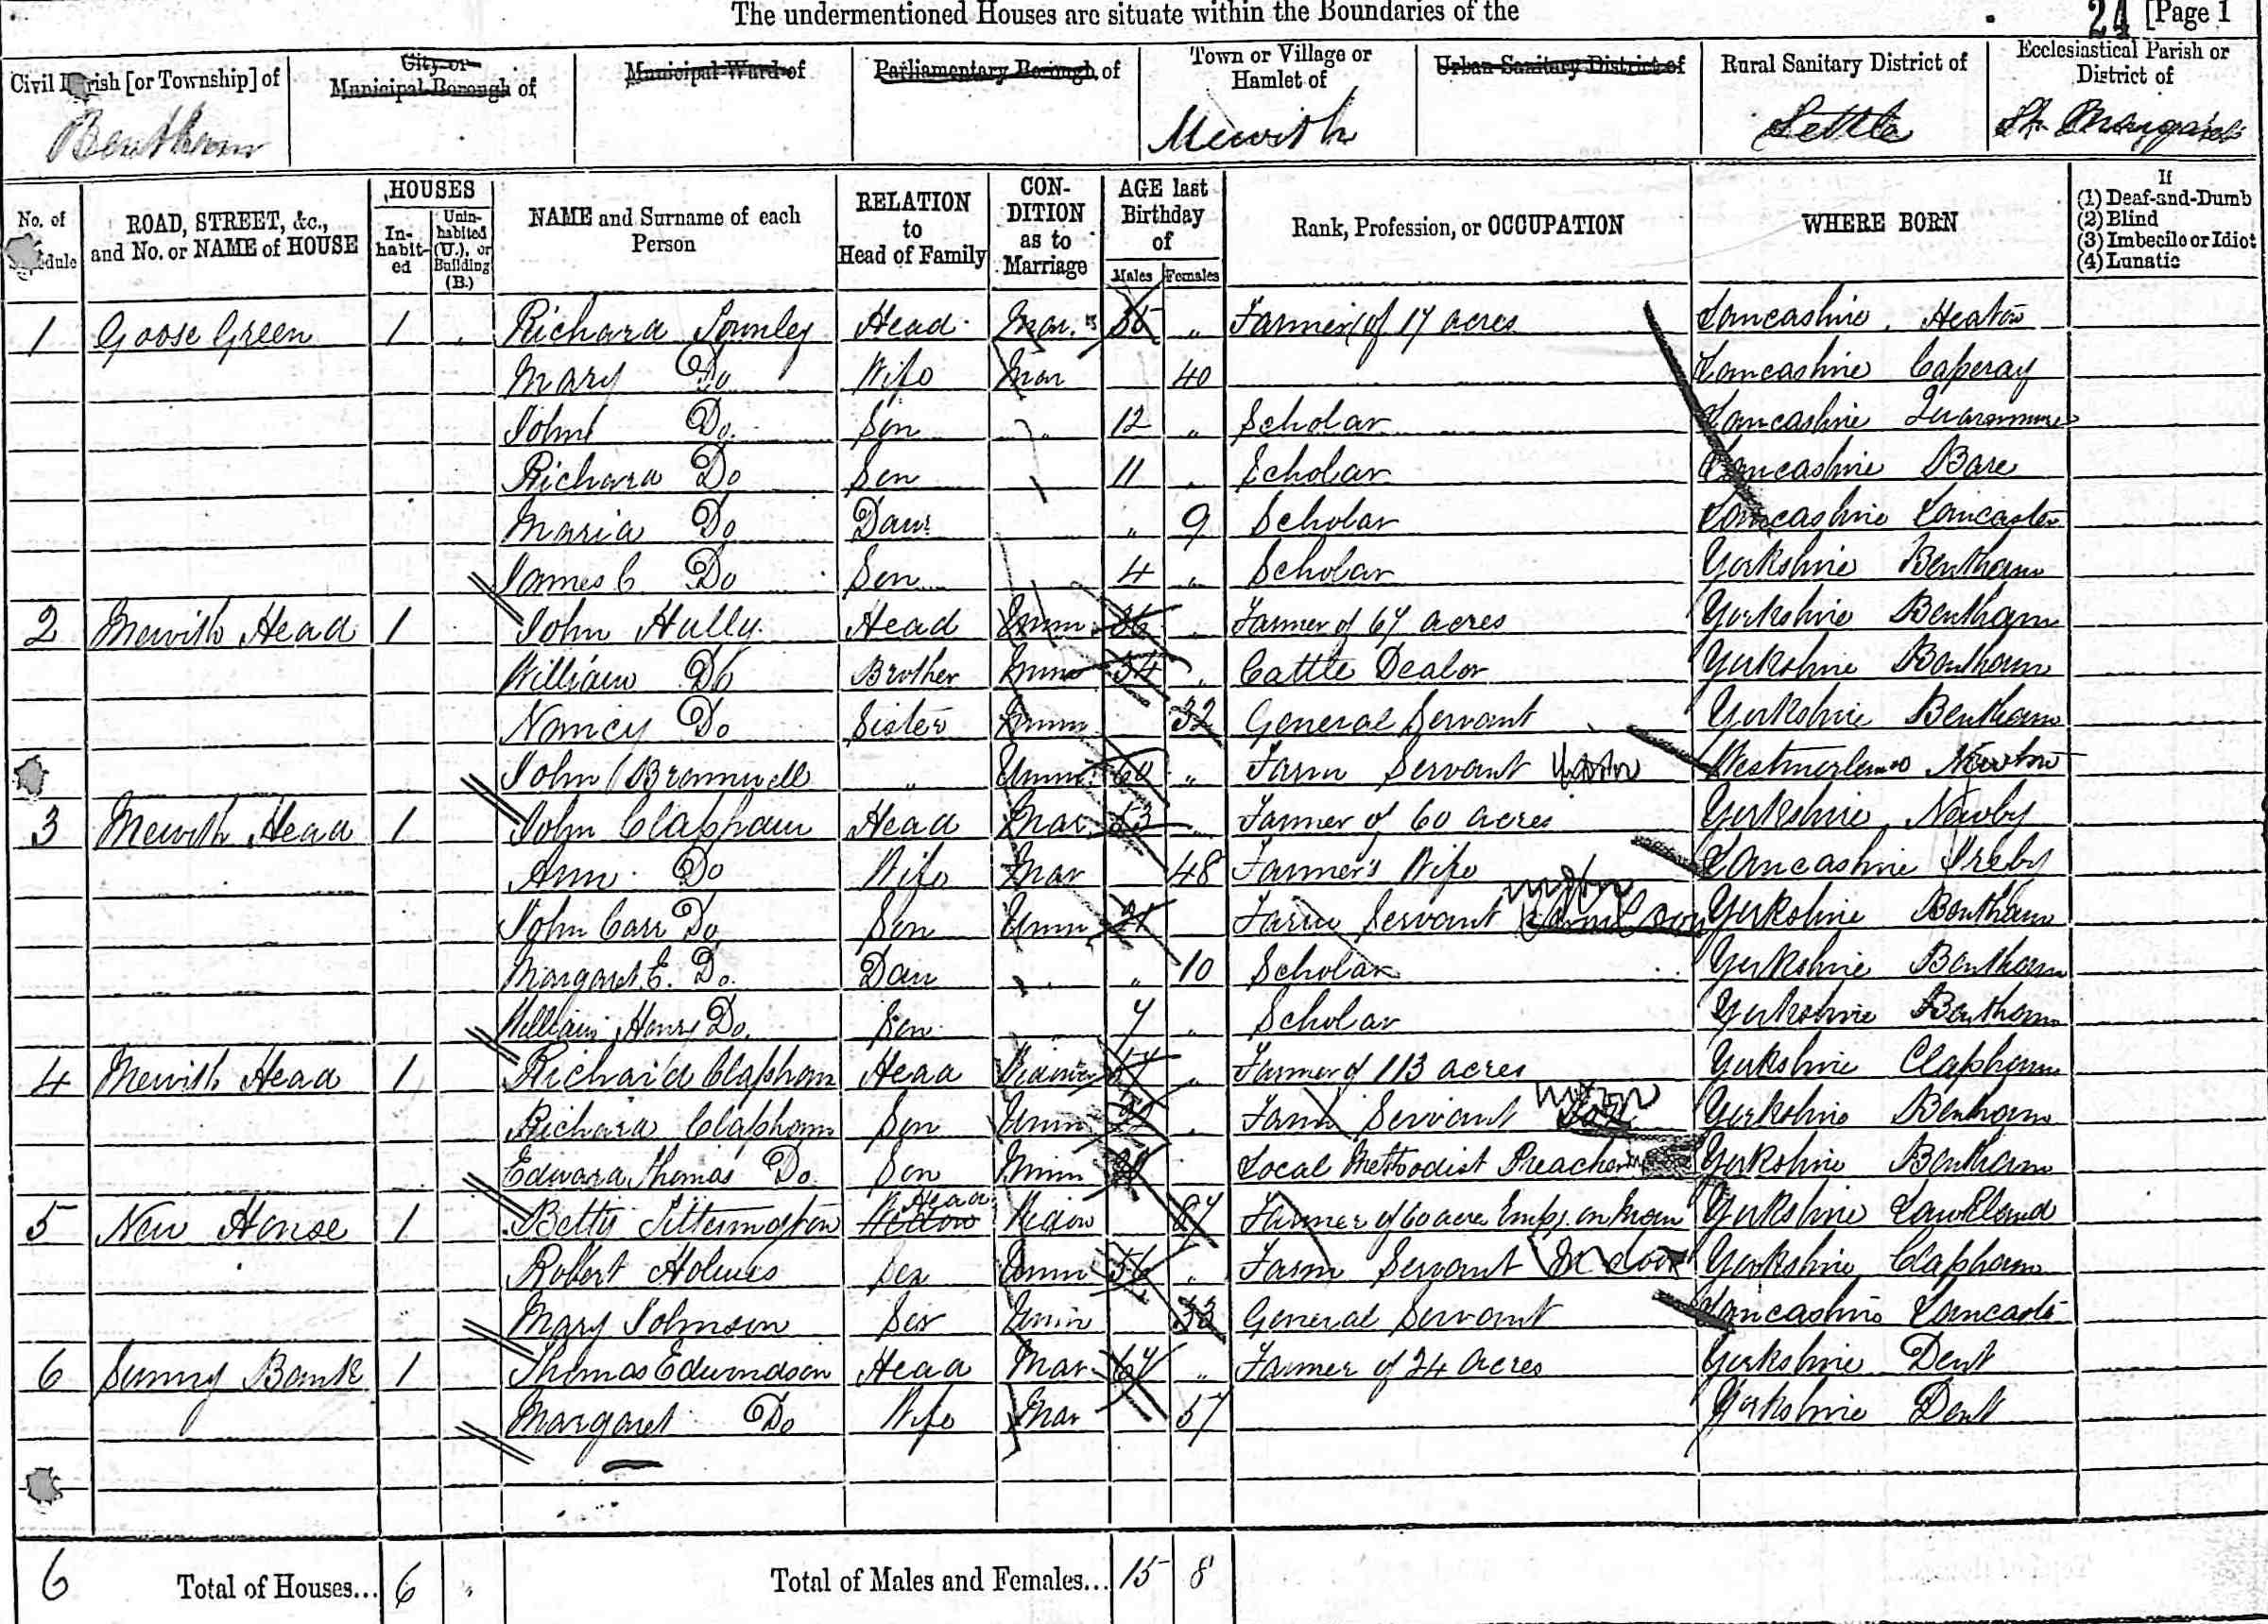 The undermentioned Houses are situate within the Boundaries of the 24 [Page 1
Civil Parish [or Township] of
City or Municipal Borough of
Municipal Ward of
Parliamentary Borough of
Town or Village or Hamlet of
Urban Sanitary District of
Rural Sanitary District of
Ecclesiastical Parish or District of
Bentham Mewith Settle St. Margarets
No. of Schedule
ROAD, STREET, &c., and No. or NAME of HOUSE
HOUSES
Inhabited
Uninhabited (U.), or Building (B.)
NAME and Surname of each Person
RELATION to Head of Family
CONDITION as to Marriage
AGE last Birthday of
Males Females
Rank, Profession, or OCCUPATION
WHERE BORN
If
(1) Deaf-and-Dumb
(2) Blind
(3) Imbecile or Idiot
(4) Lunatic
1 Goose Green 1 Richard Townley Head Mar. Farmer of 17 acres Lancashire Heaton
Mary Do Wife Mar 40 Lancashire
John Do. Son 12 " Scholar Lancashire
Richard Do Son 11 " Scholar Lancashire Bare
Maria Do Daur " 9 Scholar Lancashire Lancaster
James C. Do Son 4 " Scholar Yorkshire Bentham
2 Mewith Head 1 John Hully Head Unm 36 " Farmer of 67 acres Yorkshire Bentham
William Do Brother Unm 34 " Cattle Dealer Yorkshire Bentham
Nancy Do Sister Unm 32 General Servant Yorkshire Bentham
John Brannwell " Unm 60 " Farm Servant Westmorland Newton
3 Mewith Head 1 John Clapham Head Mar 53 " Farmer of 60 acres Yorkshire Newby
Ann Do Wife Mar 48 Farmer's Wife Lancashire Ireby
John Carr Do Son Unm 21 Farm Servant Farmer's Son Yorkshire Bentham
Margaret E. Do. Dau " 10 Scholar Yorkshire Bentham
William Henry Do. Son 7 " Scholar Yorkshire Bentham
4 Mewith Head 1 Richard Clapham Head Widower 57 " Farmer of 113 acres Yorkshire Clapham
Richard Clapham Son Unm " Farm Servant Yorkshire Bentham
Edward Thomas Do. Son Unm Local Methodist Preacher Yorkshire Bentham
5 New House 1 Betty Tittermgton Widow Head Widow 67 Farmer of 60 acre Emp. on Man Yorkshire Lawkland
Robert Holmes Ser Unm 56 " Farm Servant In door Yorkshire Clapham
Mary Johnson Ser Unm 33 General Servant Lancashire Lancaster
6 Sunny Bank 1 Thomas Edmundson Head Mar 67 " Farmer of 24 Acres Yorkshire Dent
Margaret Do Wife Mar 57 Yorkshire Dent
6 Total of Houses... 6 Total of Males and Females... 15 8